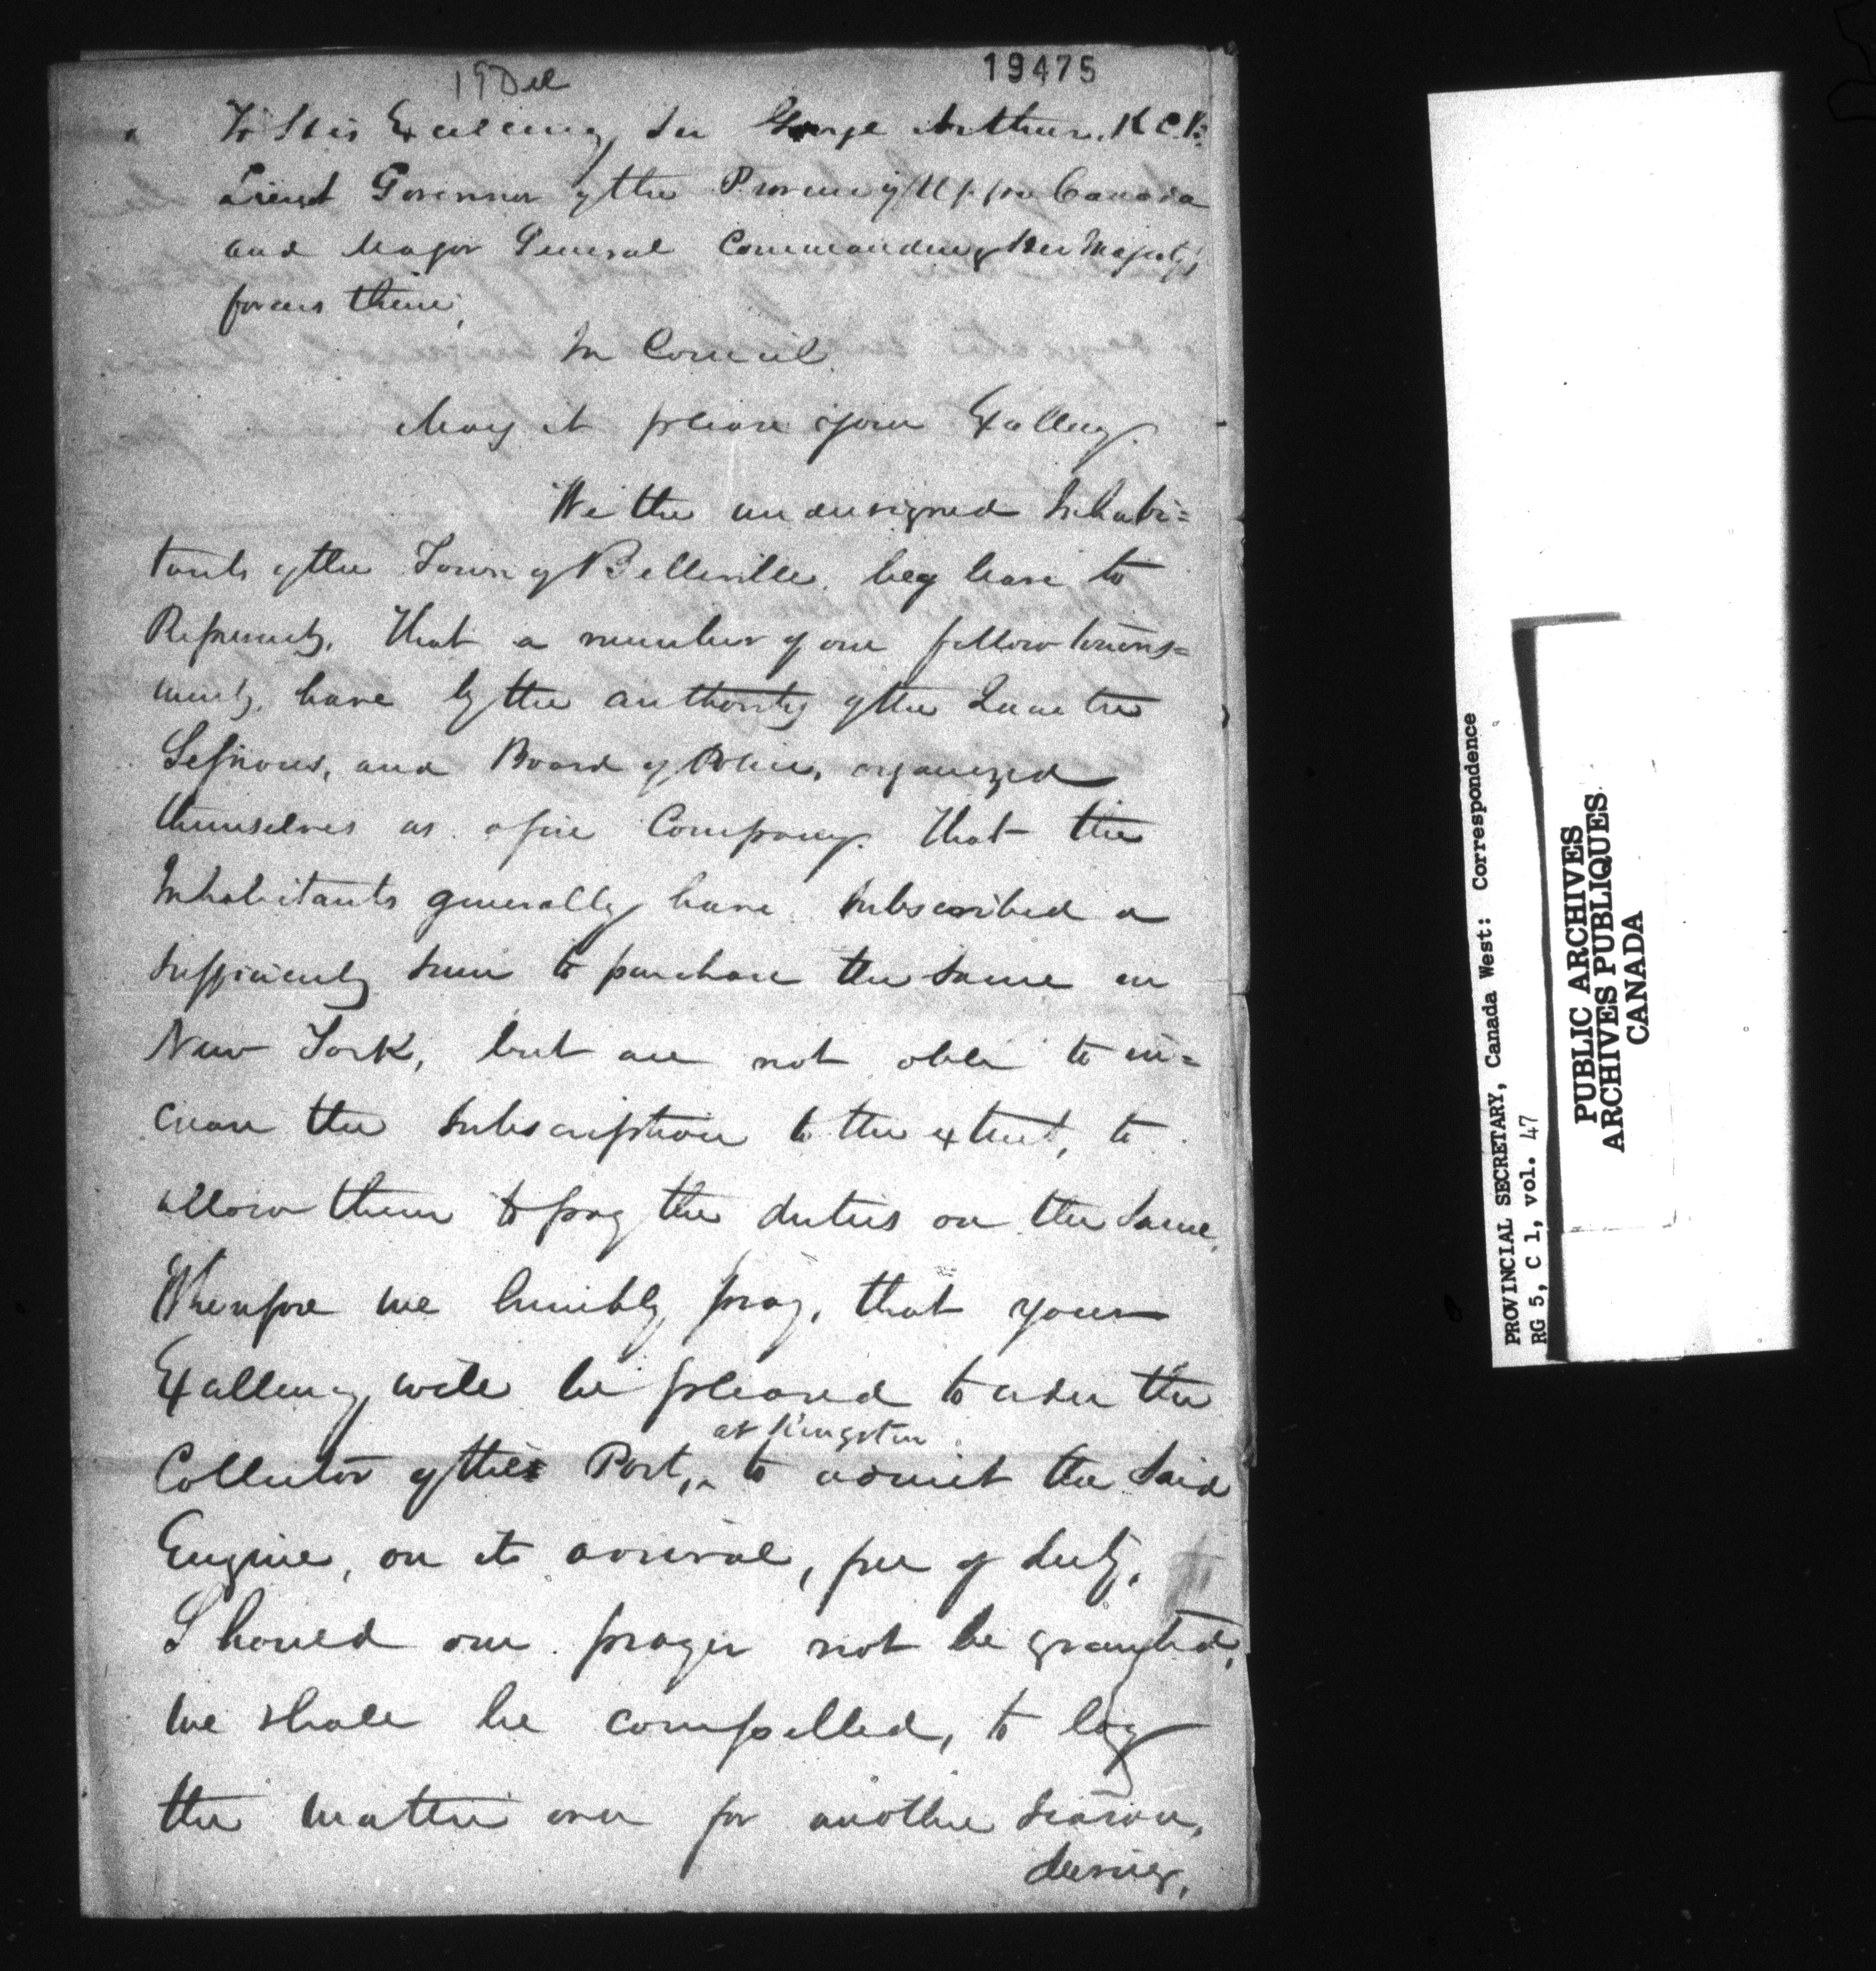 19 Dec
19475
To His Excellency Sir George Arthur. K C H:
Lieut Governor of the Province of Upper Canada
and Major General Commanding Her Majesty's
forces there,
In Council.
May it please your Excellency.
We the undersigned Inhabi=
tants of the Town of Belleville. beg leave to
Represent, That a number of our fellow towns=
ment, have by the authority of the Quarter
Sessions, and Board of Police, organized
themselves as a fire Company. That the
Inhabitants generally have subscribed a
sufficient sum to purchase the same in
New York, but are not able to in=
crease the subscription to the extent, to
allow them to pay the duties on the same.
Wherefore we humbly pray, that your
Excellency will be pleased to order the
at Kingston
Collector of the Port, ^ to admit the said
Engine, on its arrival, free of duty.
Should our prayer not be granted,
we shall be compelled, to lay
the matter over for another season,
during,
PROVINCIAL SECRETARY, Canada West: Correspondence
RG 5, C 1, vol. 47
PUBLIC ARCHIVES
ARCHIVES PUBLIQUES
CANADA